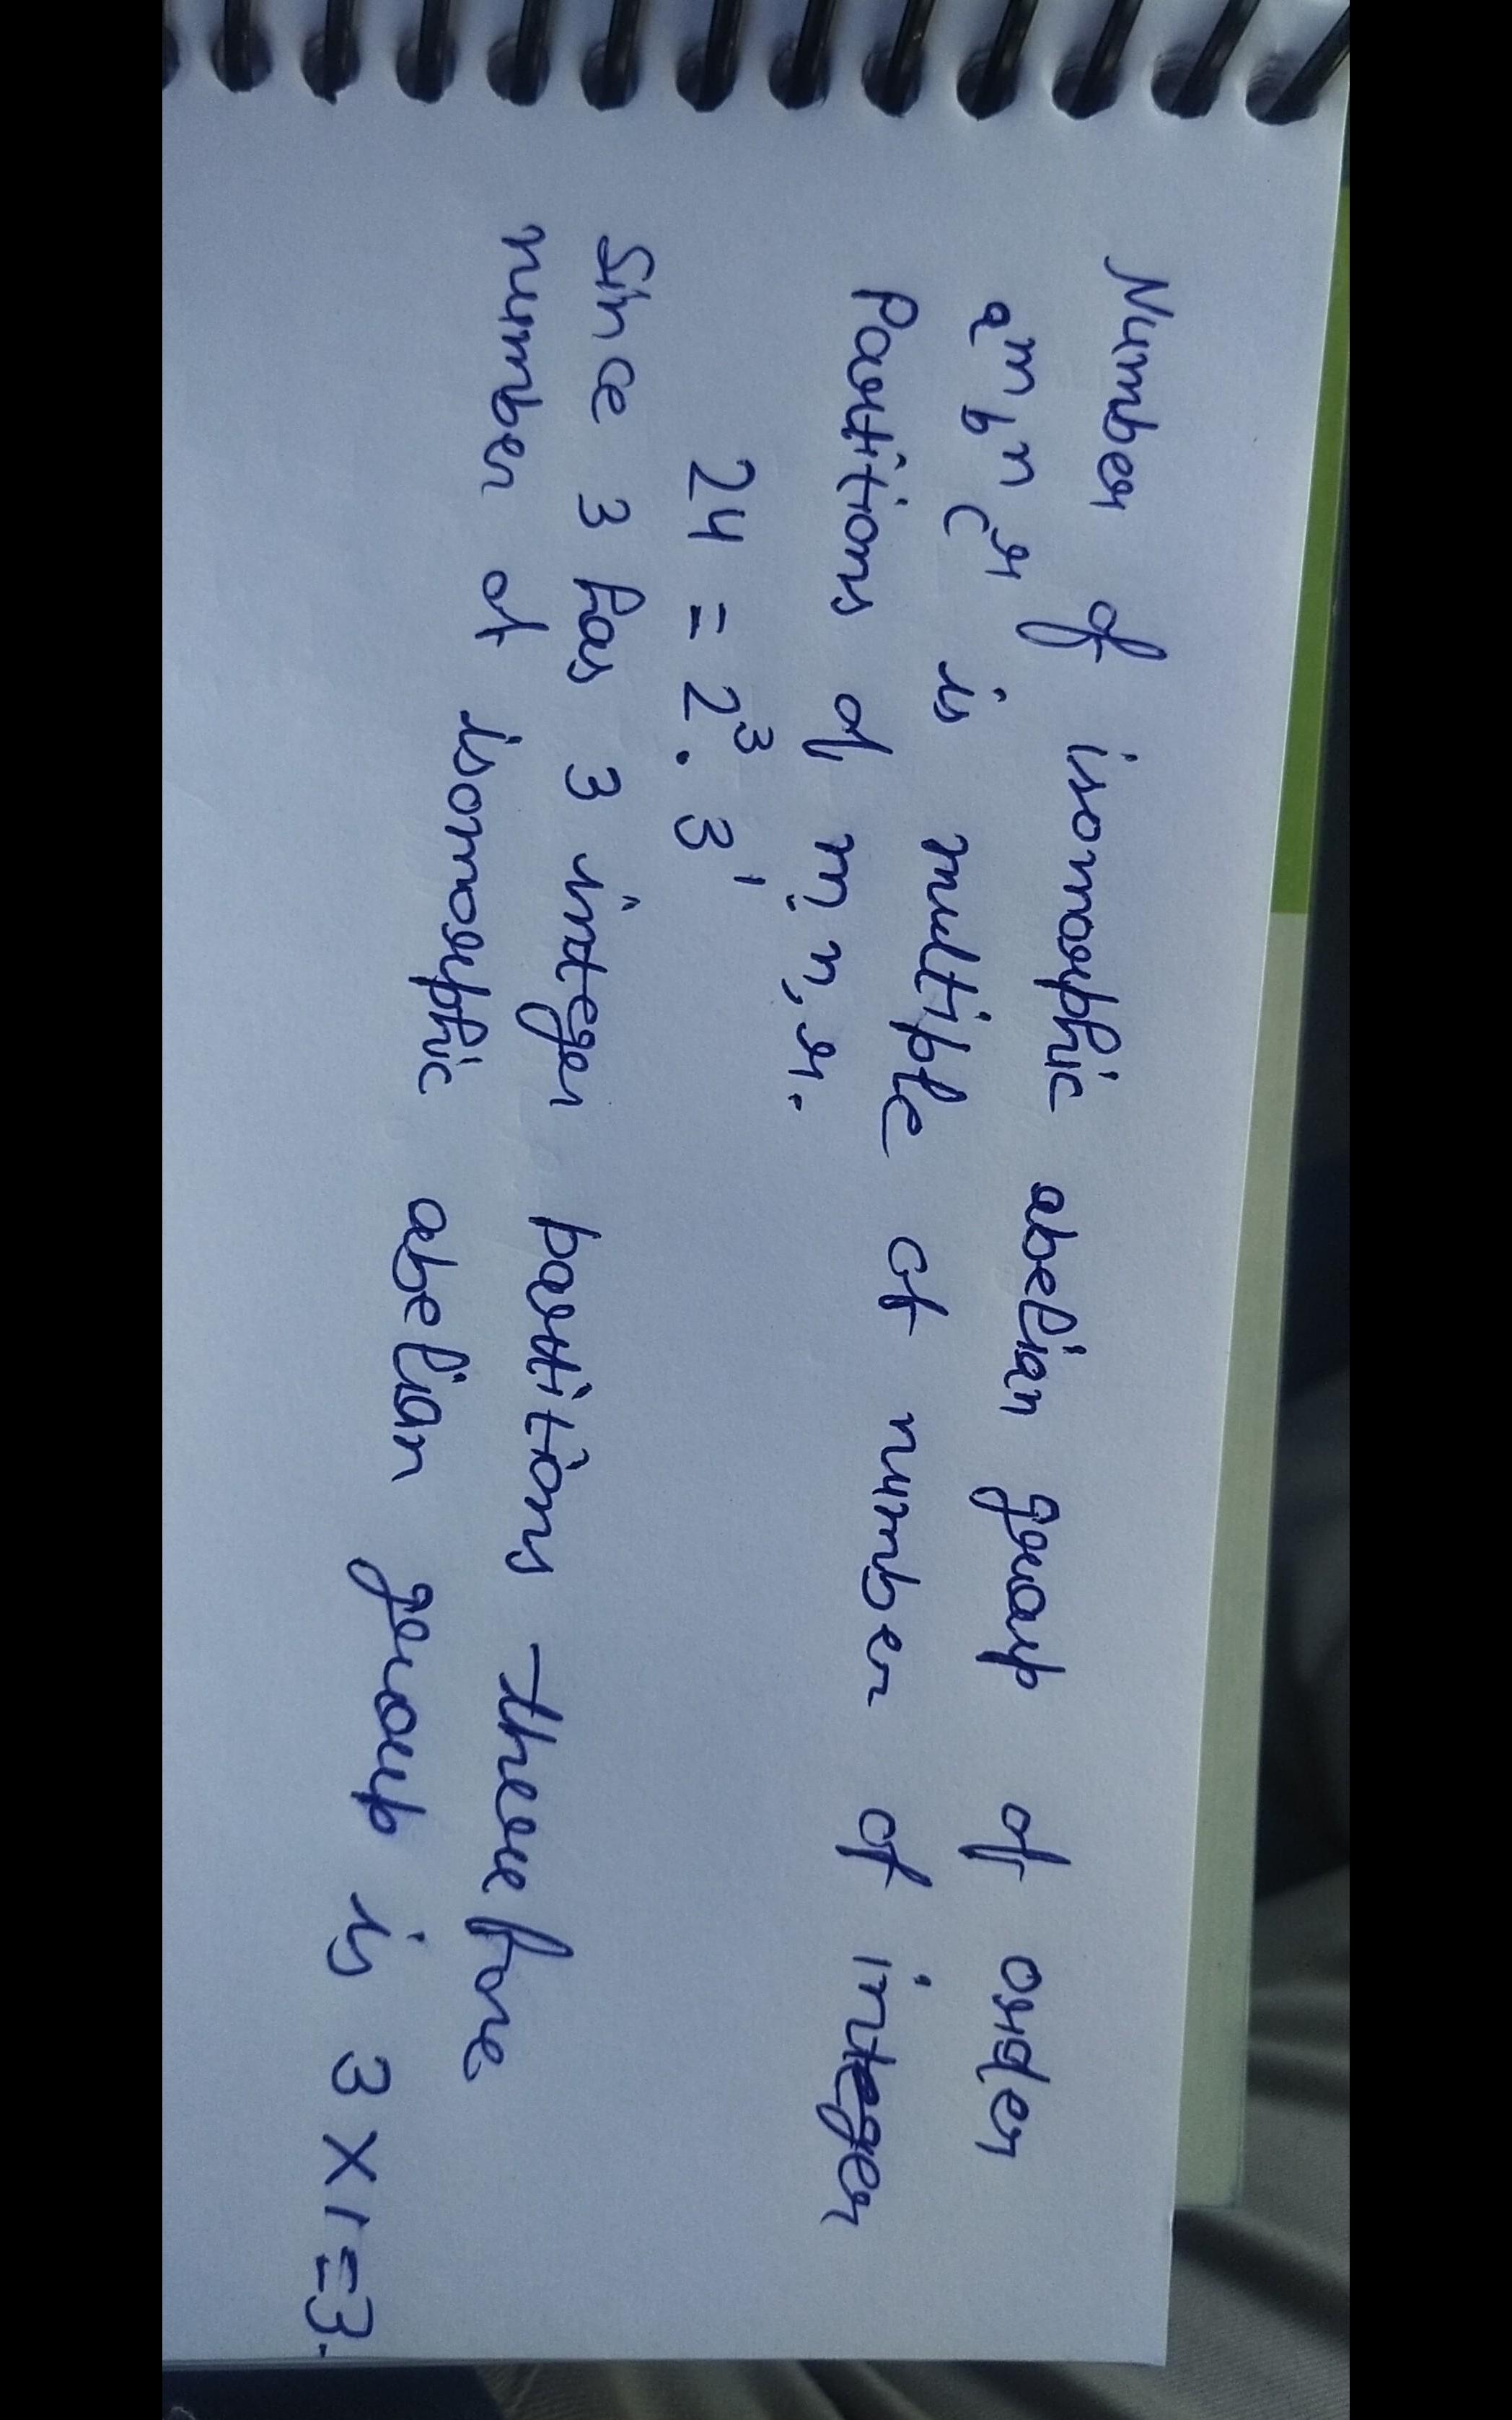 Number of isomorphic abelian group of order
a^m, b^n c^r is multiple of number of integer
Partitions of m, n, r.
24 = 2^3 . 3^1
Since 3 has 3 integer partitions therefore
number of isomorphic abelian group is 3 X 1 = 3.